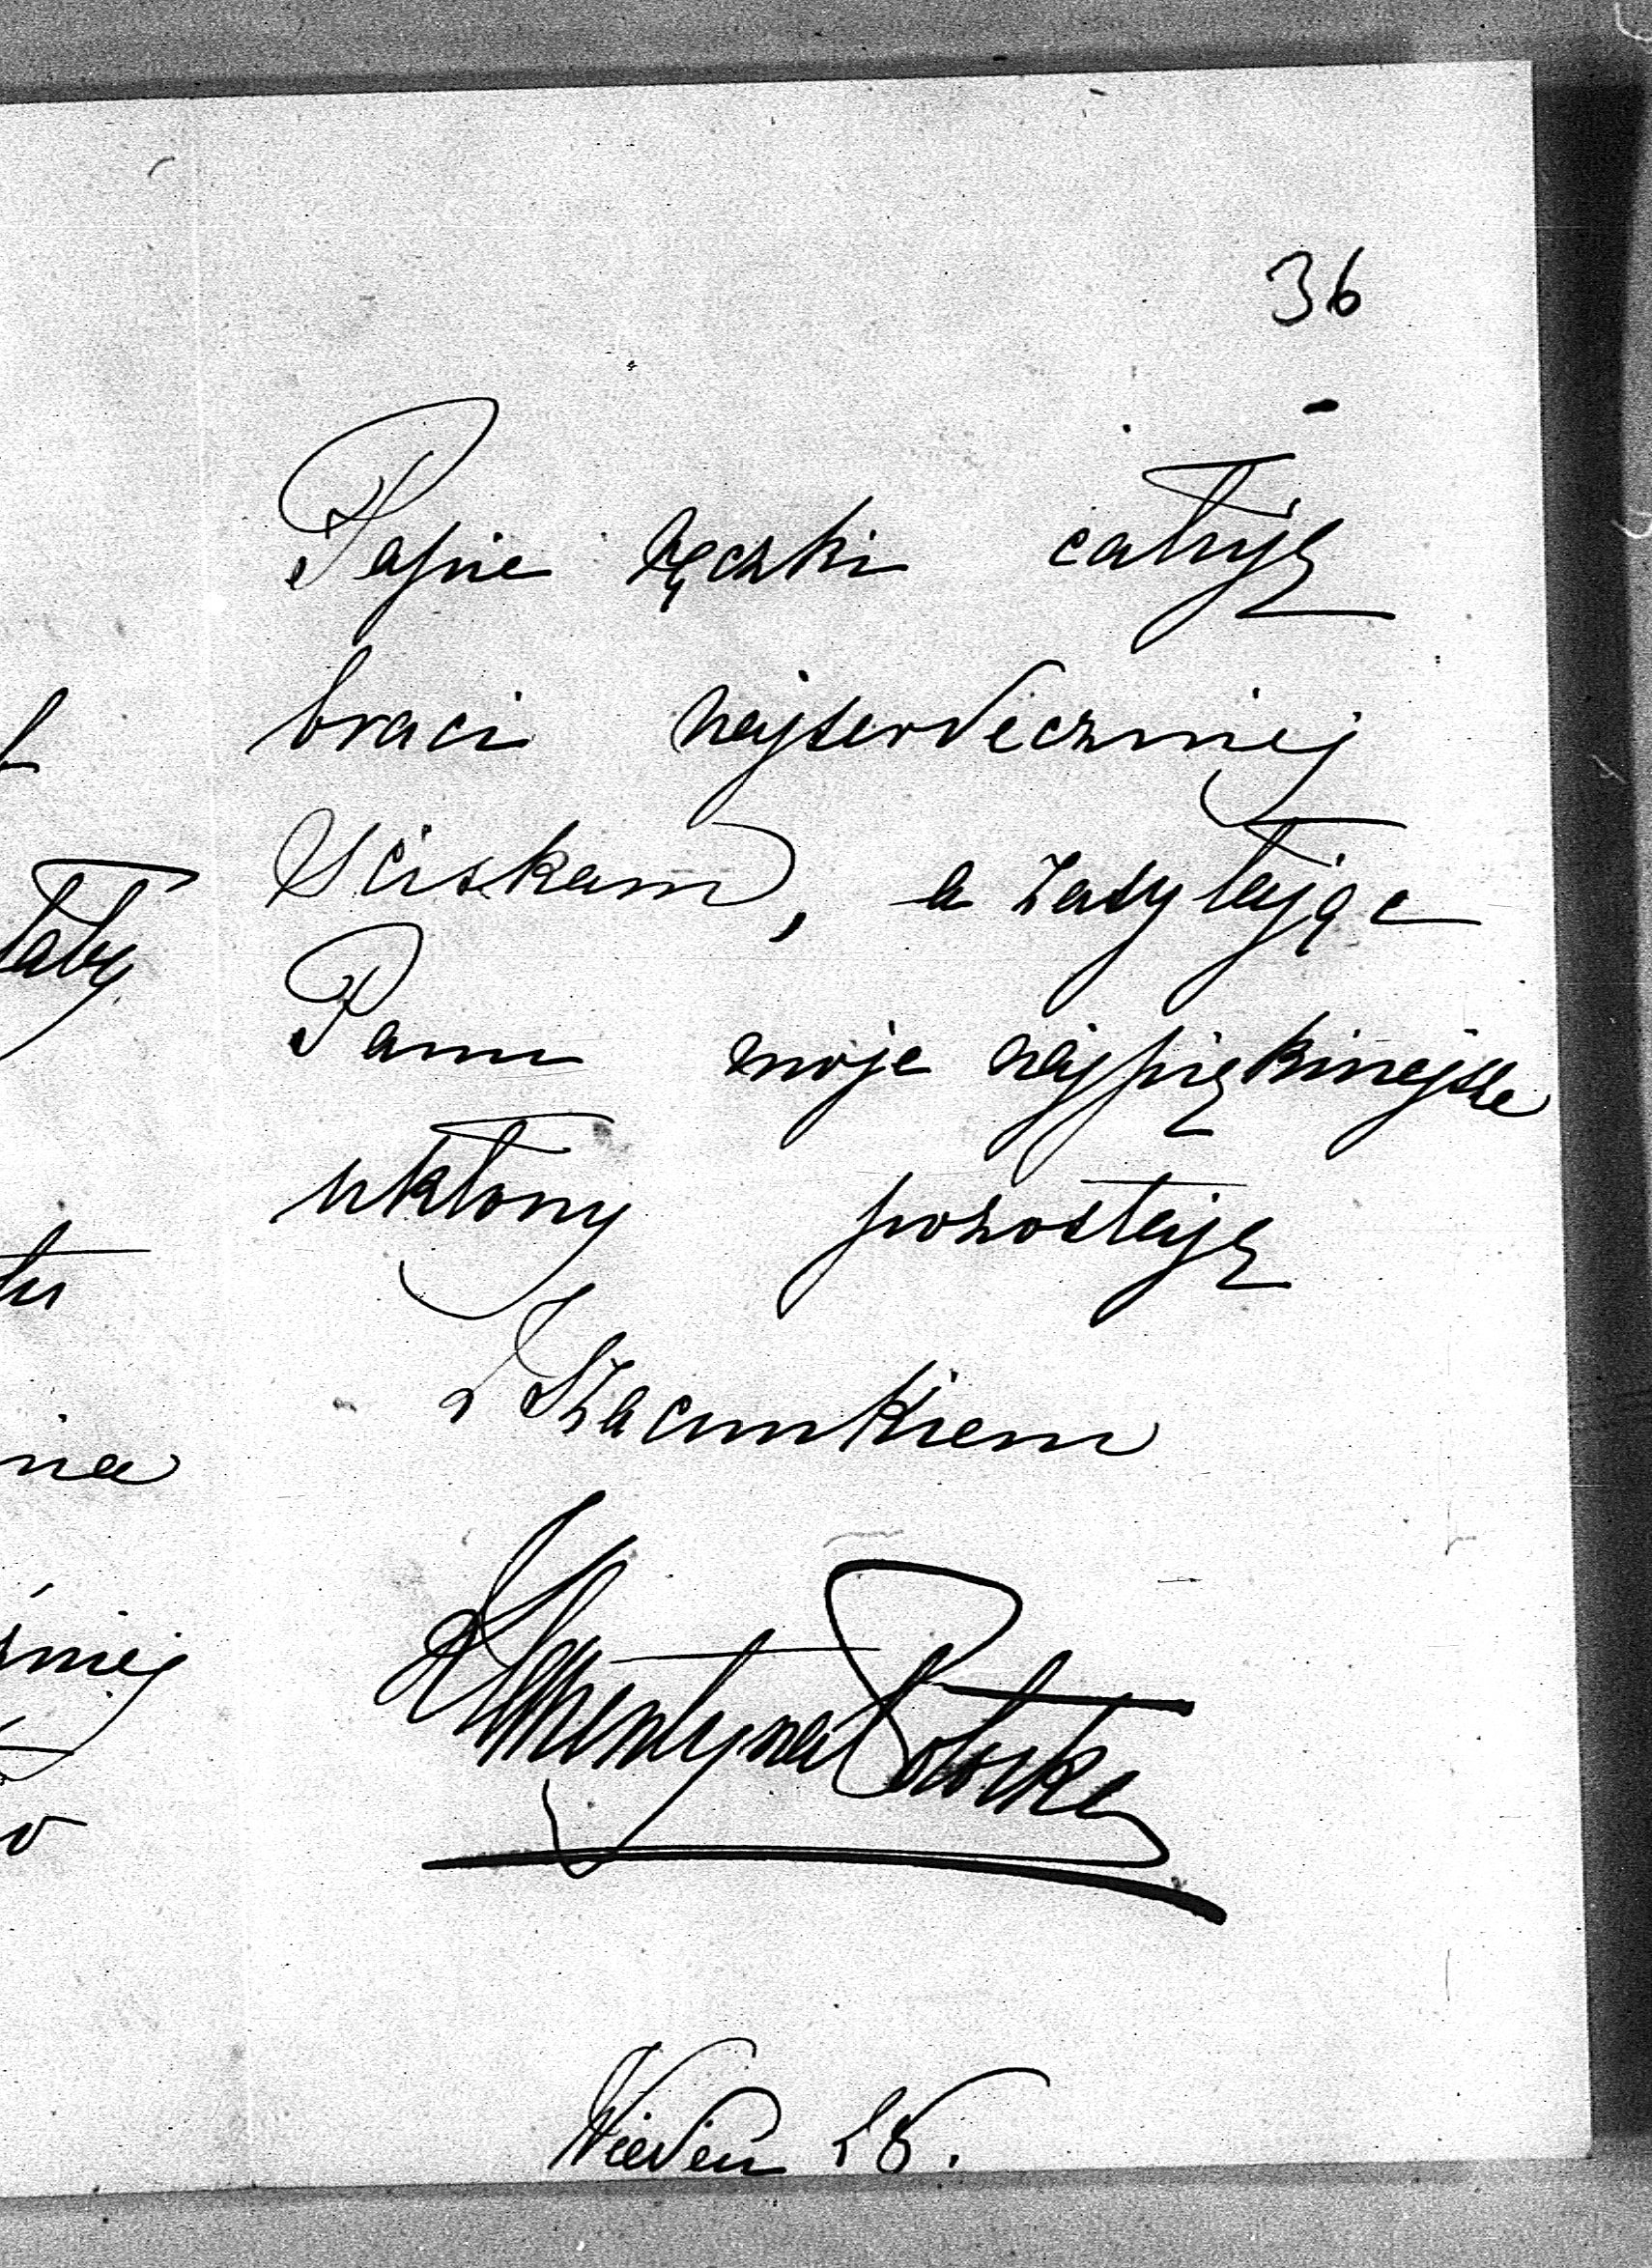 36
Pajnie rączki całuję
braci najserdeczniej
ściskam, a zasyłając
Panu moje najpiękniejsze
ukłony pozostaję
z szacunkiem
Klementyna Potocka
Wiedeń 28.
taby
tu
nia
śniej